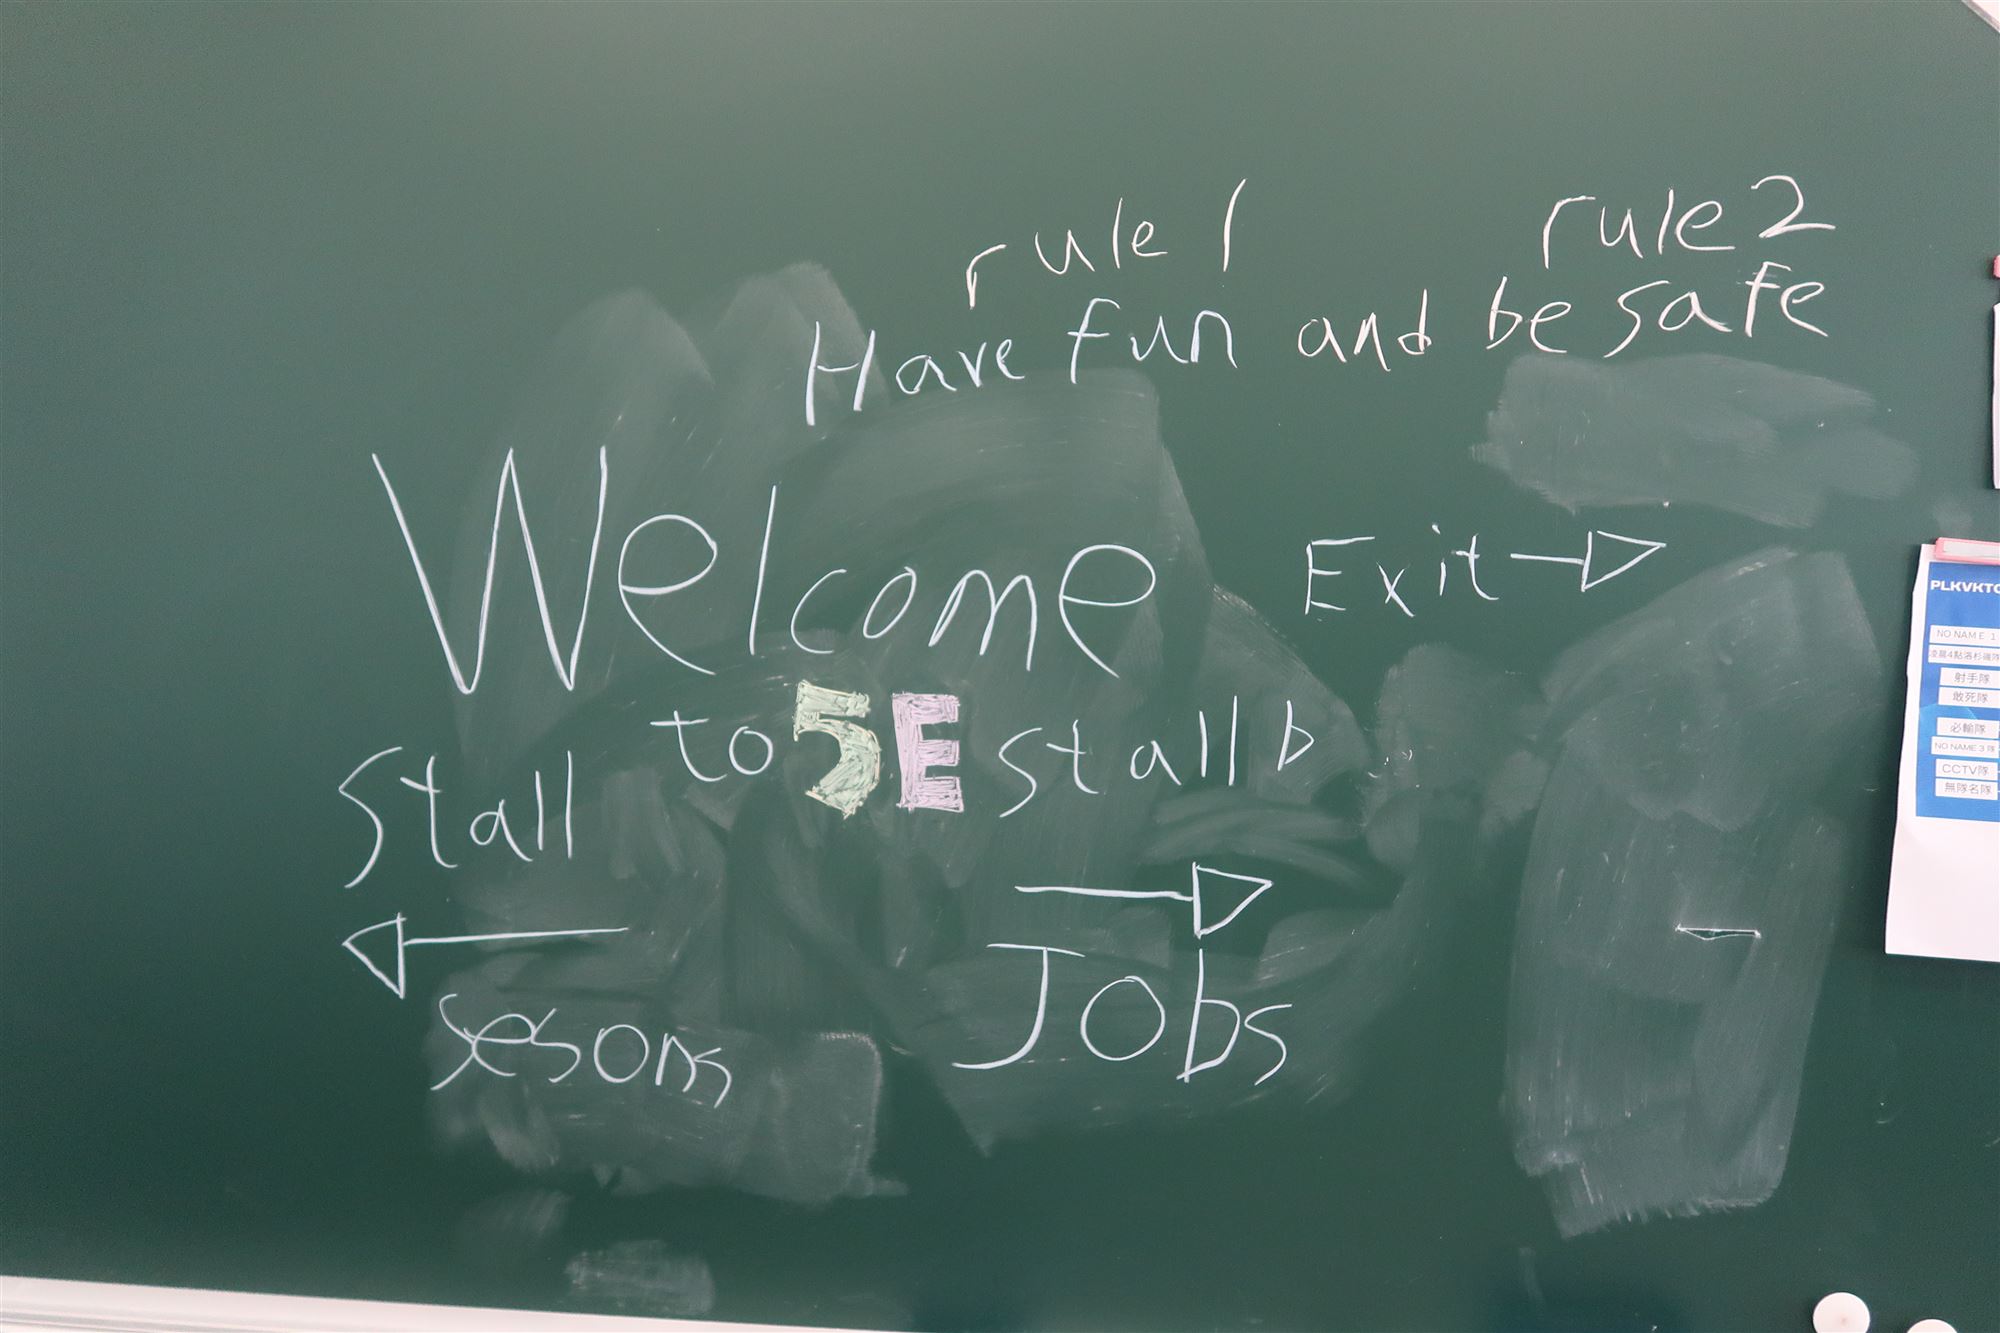 rule 1 rule 2
Have fun and be safe
Welcome
Exit
to 5E stall
stall
Jobs
sesons
PLKVKTC
NO NAME 1
凌晨4點洛杉磯隊
射手隊
敢死隊
必輸隊
NO NAME 3 隊
CCTV隊
無隊名隊